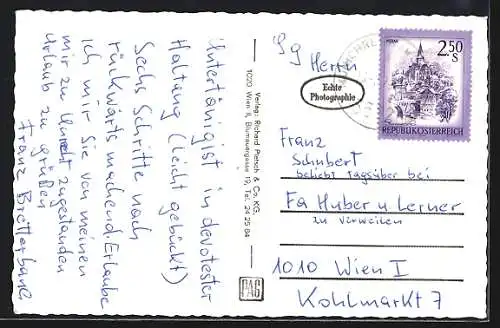 Untertänigist in devotester
Haltung (leicht gebückt)
Sechs Schritte nach
rückwärts machend Erlaube
ich mir Sie von meinen
mir zu Unrecht zugestandenen
Urlaub zu grüßen
Franz
Verlag: Richard Pietsch & Co. KG.
1020 Wien II, Blumauergasse 19, Tel. 24 25 84
PAG
Echte
Photographie
2.50
S
REPUBLIK ÖSTERREICH
Sg Herrn
Franz
Schubert
beliebt tagsüber bei
Fa Huber u Lerner
zu verweilen
1010 Wien I
Kohlmarkt 7